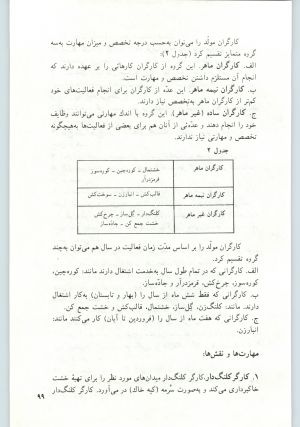 کارگران مولّد را می‌توان به‌حسب درجه تخصص و میزان مهارت به‌سه
گروه متمایز تقسیم کرد (جدول ۲):
الف. کارگران ماهر. این گروه از کارگران کارهائی را بر عهده دارند که
انجام آن مستلزم داشتن تخصص و مهارت است.
ب. کارگران نیمه ماهر. این عدّه از کارگران برای انجام فعالیت‌های خود
کم‌تر از کارگران ماهر به‌تخصص نیاز دارند.
ج. کارگران ساده (غیر ماهر). این گروه با اندک مهارتی می‌توانند وظایف
خود را انجام دهند و عده‌ئی از آنان هم برای بعضی از فعالیت‌ها به‌هیچگونه
تخصص و مهارتی نیاز ندارند.
جدول ۲
کارگران ماهر
خشتمال - کوره‌چین - کوره‌سوز
قرمزدرآر
کارگران نیمه ماهر
قالب‌کش - انبارزن - سوخت‌کش
کارگران غیر ماهر
کلنگ‌دار - گل‌ساز - چرخ‌کش
خشت جمع کن - جاده‌ساز
کارگران مولّد را بر اساس مدت زمان فعالیت در سال هم می‌توان به‌چند
گروه تقسیم کرد.
الف. کارگرانی که در تمام طول سال به‌خدمت اشتغال دارند مانند: کوره‌چین،
کوره‌سوز، چرخ‌کش، قرمزدرآر و جاده‌ساز.
ب. کارگرانی که فقط شش ماه از سال را (بهار و تابستان) به‌کار اشتغال
دارند. مانند: کلنگ‌زن، گِل‌ساز، خشتمال، قالب‌کش و خشت جمع کن.
ج. کارگرانی که هفت ماه از سال را (فروردین تا آبان) کار می‌کنند مانند:
انبارزن.
مهارت‌ها و نقش‌ها:
۱. کارگر کلنگ‌دار. کارگر کلنگ‌دار میدان‌های مورد نظر را برای تهیهٔ خشت
خاکبرداری می‌کند و به‌صورت سُرمه (کپه خاک) در می‌آورد. کارگر کلنگ‌دار
۹۹